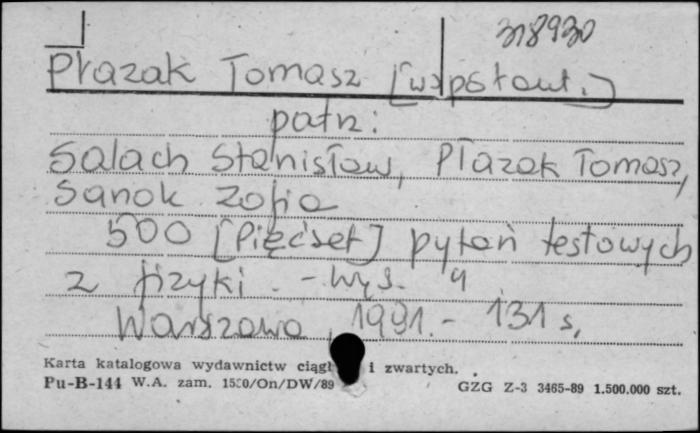 318930
Płazak Tomasz [współaut.]
patrz:
Salach Stanisław, Płazak Tomasz,
Sanok Zofia
500 [Pięćset] pytań testowych
z fizyki. - Wyd. 4
Warszawa, 1991. - 131 s.
Karta katalogowa wydawnictw ciągł i zwartych.
Pu-B-144 W.A. zam. /On/DW/89 GZG Z-3 3465-89 1.500.000 szt.